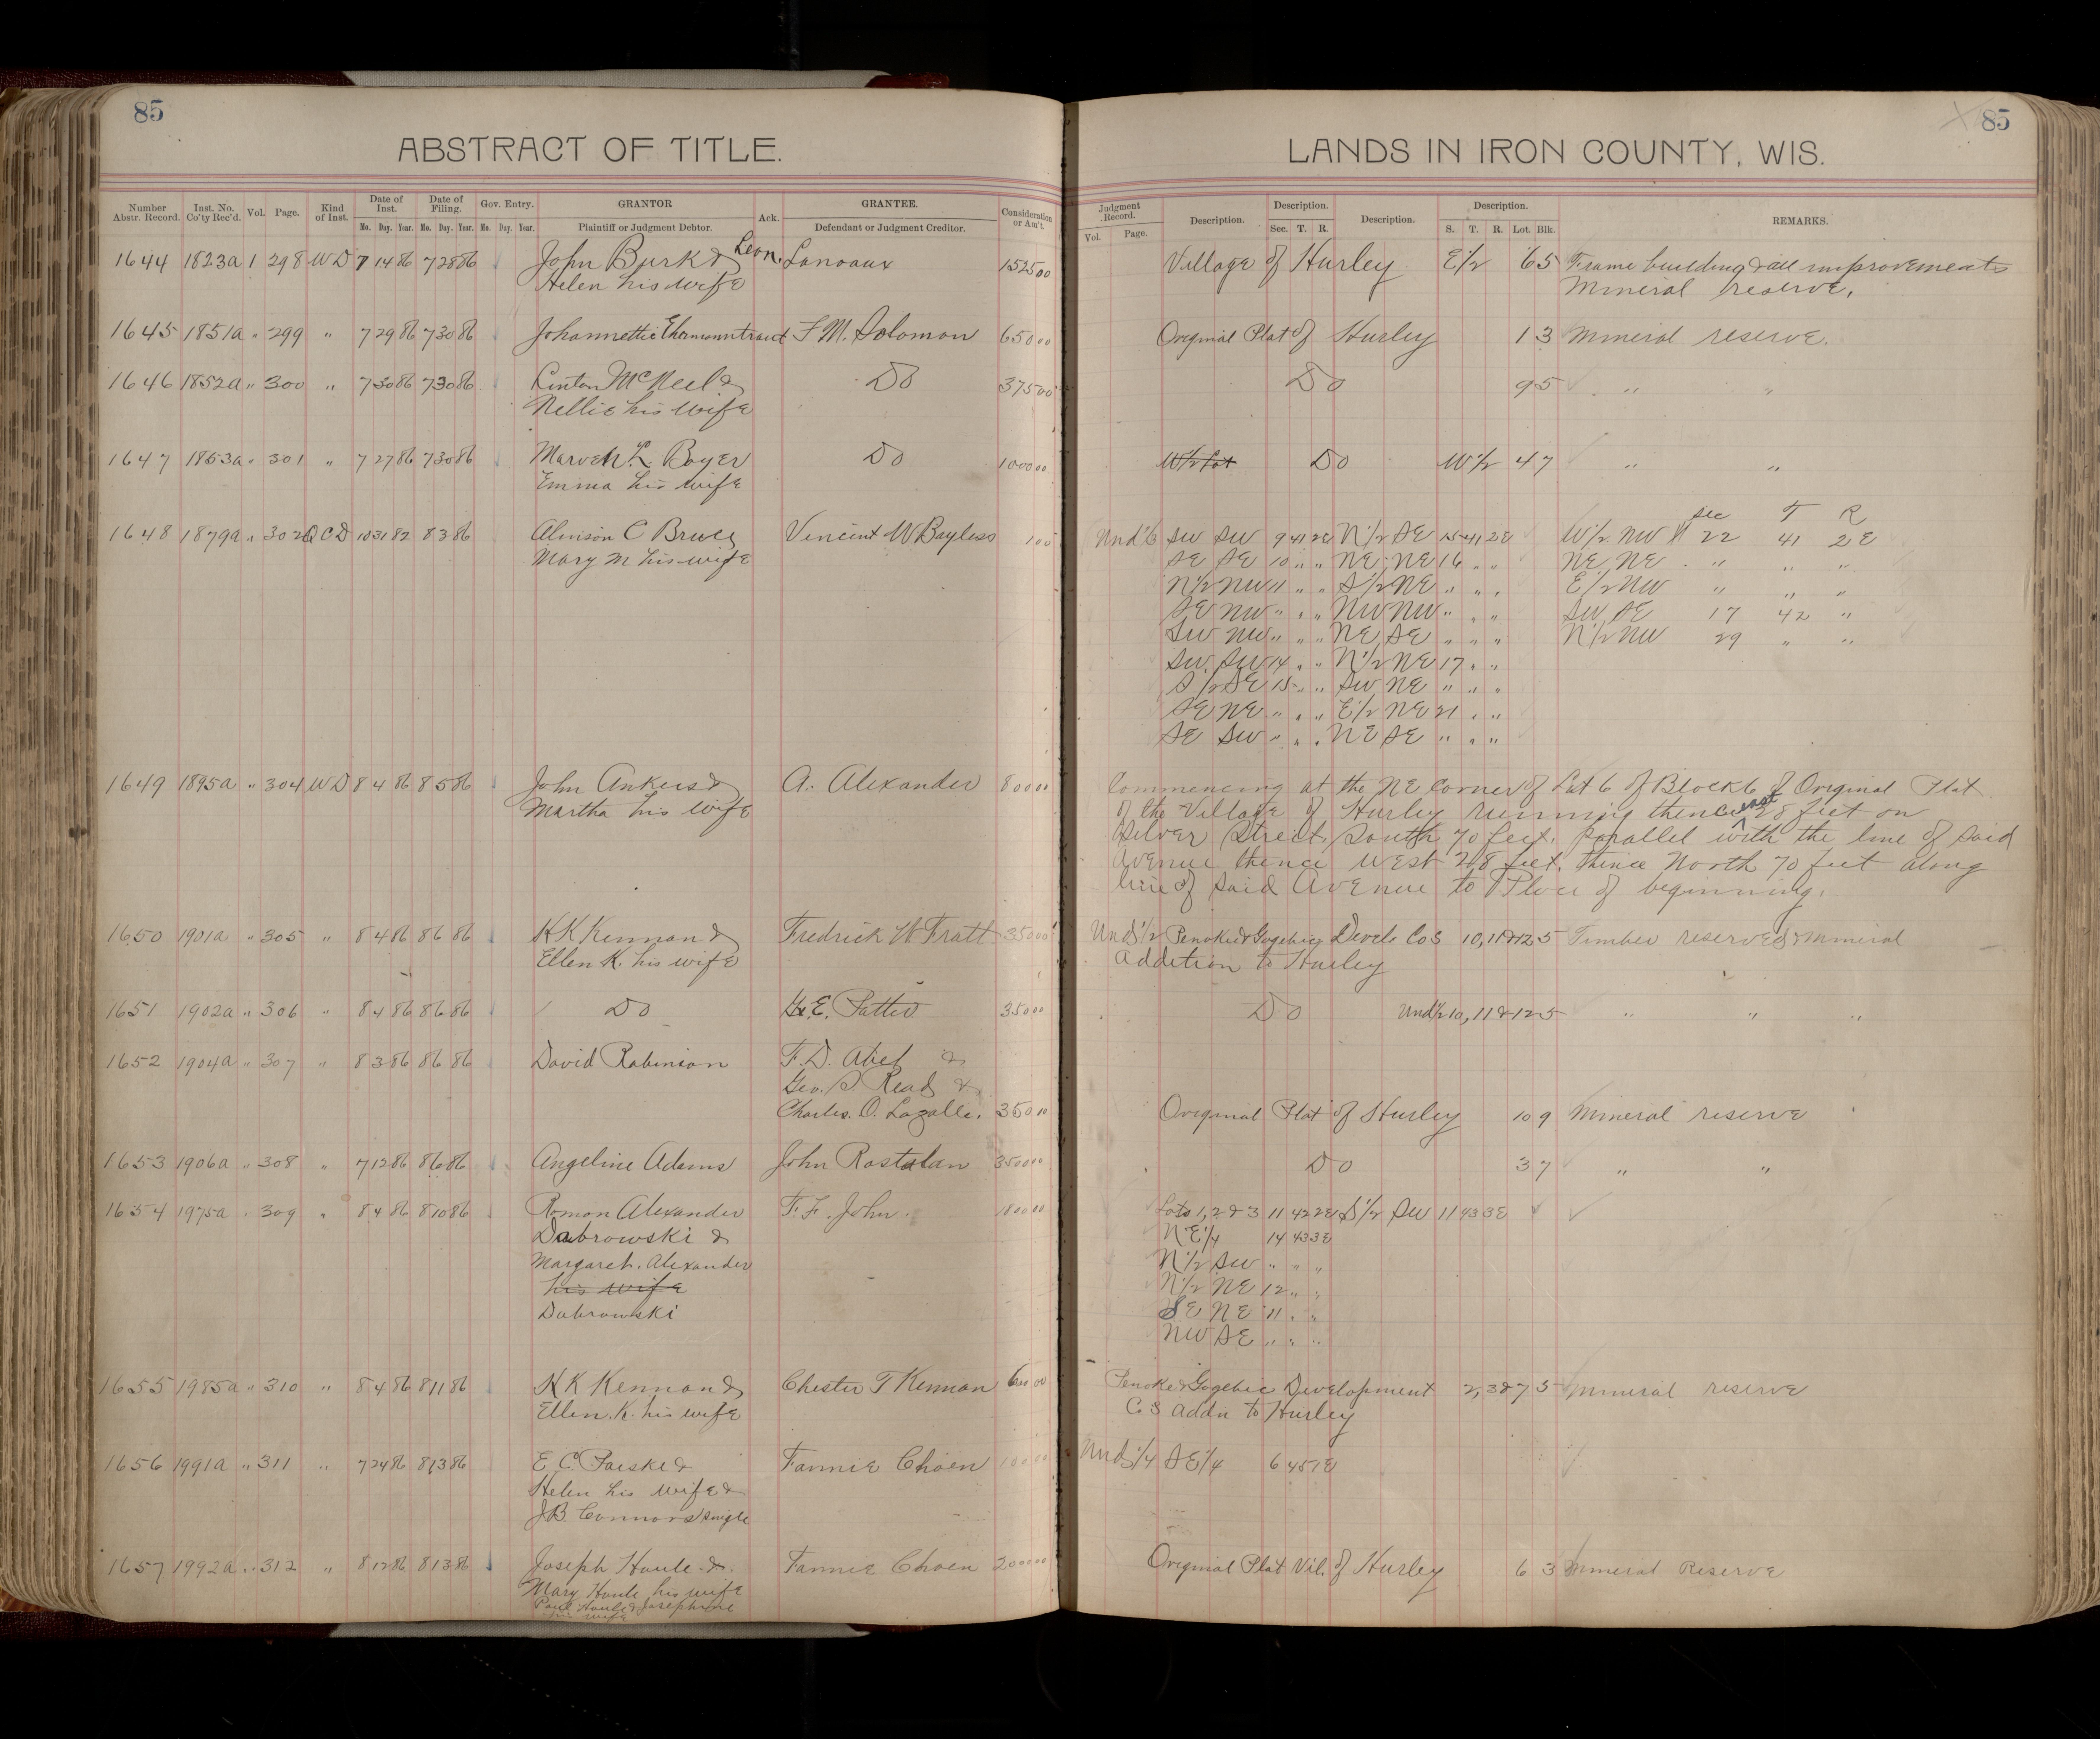 85
ABSTRACT OF TITLE.
Number Abstr. Record. Inst. No. Co'ty Rec'd. Vol. Page. Kind of Inst. Date of Inst. Date of Filing. Gov. Entry. GRANTOR Ack. GRANTEE. Consideration or Am't.
Mo. Day. Year. Mo. Day. Year. Mo. Day. Year. Plaintiff or Judgment Debtor. Defendant or Judgment Creditor.
1644 1823a 1 298 WD 7 14 86 7 28 86 John Burk & Leon. Lanoaux 1525 00
Helen his wife
1645 1851a " 299 " 7 29 86 7 30 86 Johannettie Ehrmanntraut F M. Solomon 650 00
1646 1852a " 300 " 7 30 86 7 30 86 Linton McNeel & Do 375 00
Nellie his wife
1647 1853a " 301 " 7 27 86 7 30 86 L. Boyer Do 1000 00
Emma his wife
1648 1879a " 302 QCD 10 31 82 8 3 86 Alinson C Bruce Vincent W Bayless 1 00
Mary M his wife
1649 1895a " 304 WD 8 4 86 8 5 86 John Ankers & A. Alexander 800 00
Martha his wife
1650 1901a " 305 " 8 4 86 8 6 86 K K Kennan & Fredrick W Pratt 350 00
Ellen K. his wife
1651 1902a " 306 " 8 4 86 8 6 86 Do E. 350 00
1652 1904a " 307 " 8 3 86 8 6 86 David Robinson F. D. Abel &
Geo. S Read &
Charles. O. Lazalle. 350 00
1653 1906a " 308 " 7 12 86 8 6 86 Angeline Adams John Rostalan 3500 00
1654 1975a " 309 " 8 4 86 8 10 86 Roman Alexander F. F. John. 800 00
Dabrowski &
Margaret. Alexander
his wife
Dabrowski
1655 1985a " 310 " 8 4 86 8 11 86 K K Kennan & Chester T Kennan 600 00
Ellen. K. his wife
1656 1991a " 311 " 7 24 86 8 13 86 E. C. & Fannie Choen 100 00
Helen his wife &
J.B. Connors single
1657 1992a " 312 " 8 12 86 8 13 86 Joseph Houle & Fannie Choen 2000 00
Mary Houle his wife
Paul Houle & Josephine
his wife
85
LANDS IN IRON COUNTY, WIS.
Judgment Record. Description. Description. Description. Description. REMARKS.
Vol. Page. Sec. T. R. S. T. R. Lot. Blk.
Village of Hurley E/2 6 5 Frame building & all improvements
Mineral reserve.
Original Plat of Hurley 1 3 Mineral reserve.
Do 9 5 " "
W/2 Lot Do W 1/2 4 7 " "
Sec T R
Und 1/6 SW SW 9 41 2E N 1/2 SE 15 41 2E W/2 NW 22 41 2E
SE SE 10 " " NE NE 16 " " NE NE " " "
N 1/2 NW 11 " " S 1/2 NE " " " E/2 NW " " "
SE NW " " " NW NW " " " SW SE 17 42 "
SW NW " " " NE SE " " " N 1/2 NW 29 " "
SW SW 14 " " N 1/2 NE 17 " "
S 1/2 SE 15 " " SW NE " " "
SE NE " " " E 1/2 NE 21 " "
SE SW " " " NE SE " " "
Commencing at the NE Corner of Lot 6 of Block 6 of Original Plat
of the Village of Hurley running thence east 28 feet on
Silver Street, South 70 feet. parallel with the line of said
Avenue thence West 28 feet. thence North 70 feet along
line of said Avenue to Place of beginning.
Und 1/2 Penoke & Gogebic Devel. Co S 10, 11 & 12 5 Timber reserved & mineral
Addition to Hurley
Do Und 1/2 10, 11 & 12 5 " " "
Original Plat of Hurley 10 9 Mineral reserve
Do 3 7 " "
Lots 1, 2 & 3 11 42 2E S 1/2 SW 11 43 3E
NE 1/4 14 43 3E
N 1/2 SW " " "
N 1/2 NE 12 " "
SE NE 11 " "
NW SE " " "
Penoke & Gogebic Development 2, 3 & 7 5 Mineral reserve
Co S Addn to Hurley
Und 1/4 SE 1/4 6 45 1E
Original Plat Vil. of Hurley 6 3 Mineral Reserve